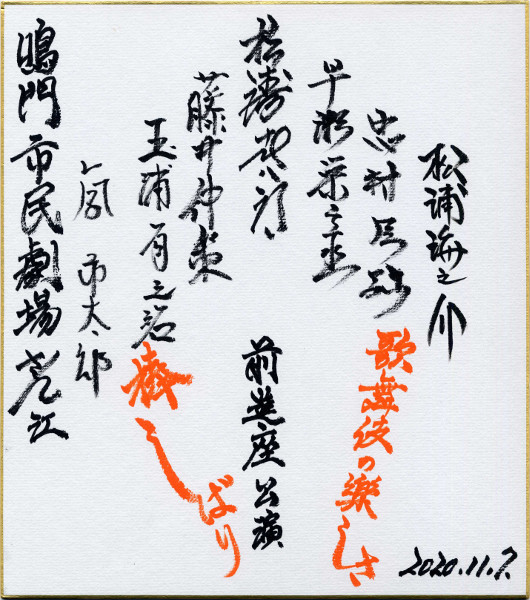 松浦海之介
忠村臣弥
早瀬栄之丞
松涛喜八郎
藤井偉策
玉浦有之祐
嵐市太郎
歌舞伎の楽しさ
前進座公演
棒しばり
鳴門市民劇場さん江
2020.11.7.